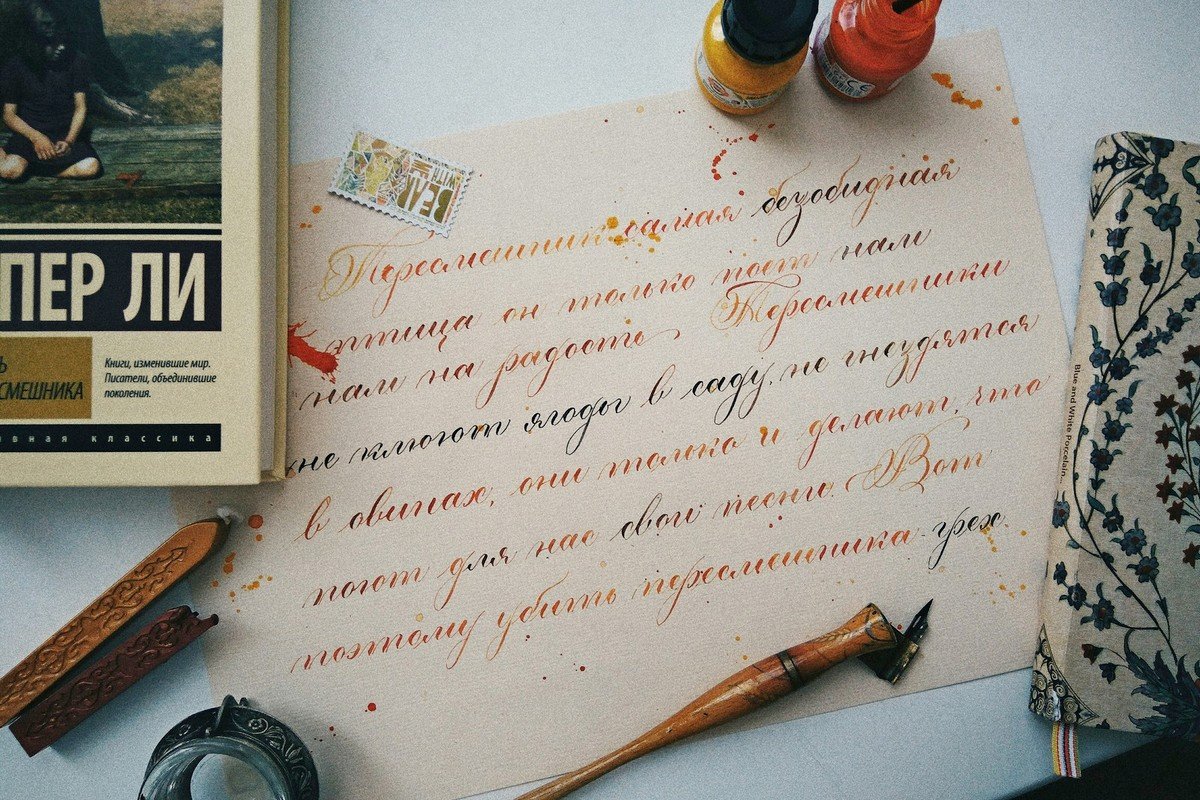 ПЕР ЛИ
Ь
СМЕШНИКА
Книги, изменившие мир.
Писатели, объединившие
поколения.
вная классика
BEAR
WITH
Пересмешник самая безобидная
птица он только поет нам
нам на радость. Пересмешники
не клюют ягоды в саду, не гнездятся
в овинах, они только и делают, что
поют для нас свои песни. Вот
поэтому убить пересмешника - грех.
Blue and White Porcelain...
CE